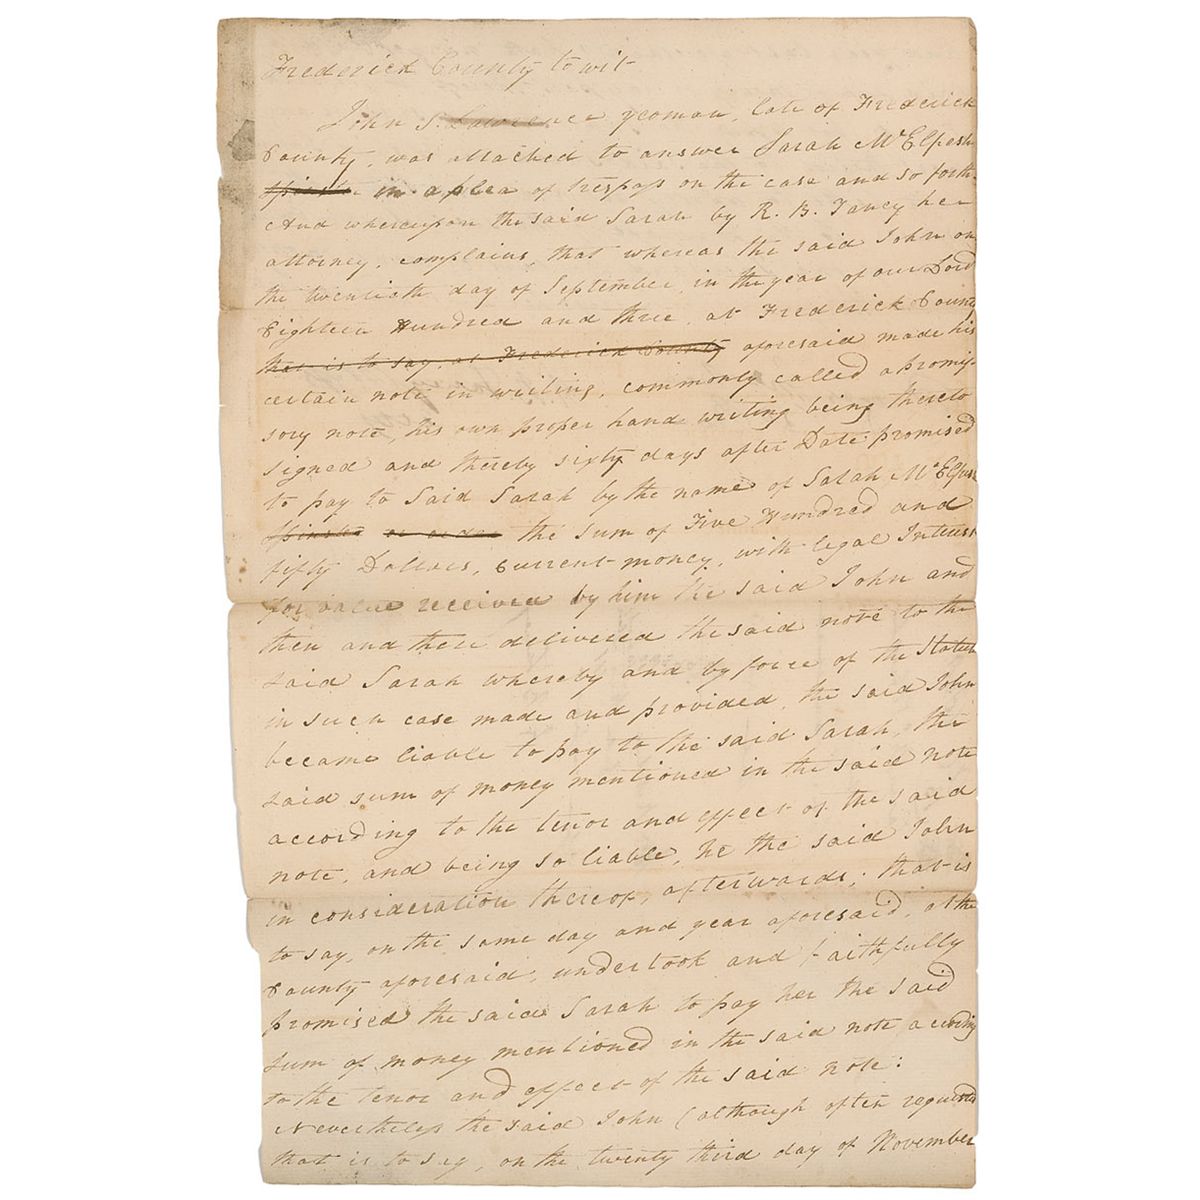 Frederick County to wit
John S. Lawrence yeoman, late of Frederick
County, was attached to answer Sarah McElfresh
spinster in a plea of trespass on the case and so forth
And whereupon the said Sarah by R. B. Taney her
attorney, complains, that whereas the said John on
the twentieth day of September, in the year of our Lord
Eighteen Hundred and three, at Frederick County
that is to say, at Frederick County aforesaid made his
certain note in writing, commonly called a promis-
sory note, his own proper hand writing being thereto
signed and thereby sixty days after Date promised
to pay to Said Sarah by the name of Sarah McElfresh
spinster or order the sum of Five Hundred and
fifty Dollars, current money, with legal Interest
for value received by him the said John and
then and there delivered the said note to the
said Sarah whereby and by force of the Statute
in such case made and provided, the said John
became liable to pay to the said Sarah, the
said sum of money mentioned in the said note
according to the tenor and effect of the said
note, and being so liable, he the said John
in consideration thereof, afterwards; that is
to say, on the same day and year aforesaid, at the
County aforesaid, undertook and faithfully
promised the said Sarah to pay her the said
sum of money mentioned in the said note according
to the tenor and effect of the said note:
Nevertheless the said John (although often requested
that is to say, on the twenty third day of November